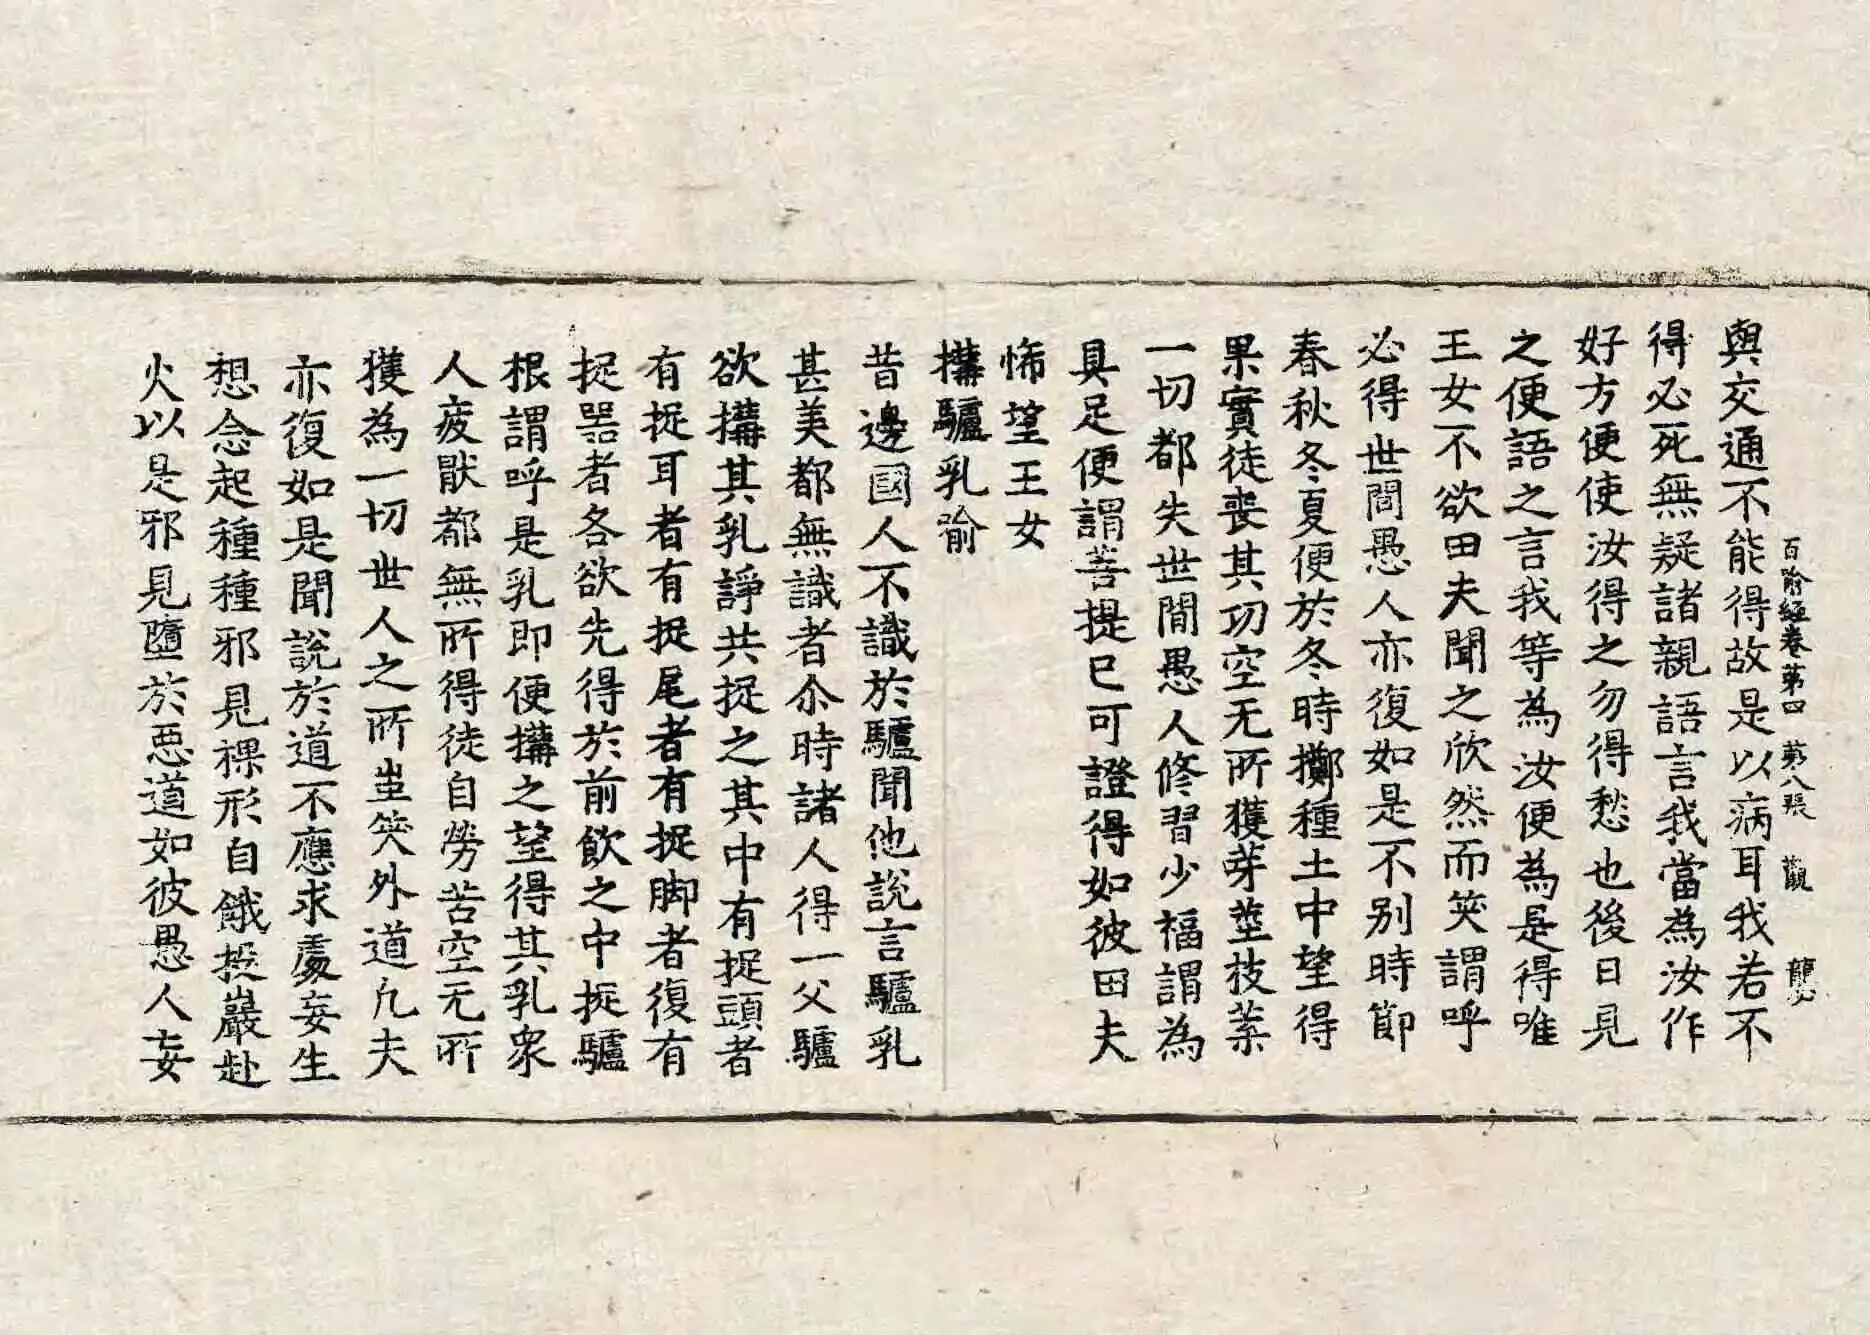 百喻經卷苐四 苐八張 觀 龔
與交通不能得故是以病耳我若不
得必死無疑諸親語言我當為汝作
好方便使汝得之勿得愁也後日見
之便語之言我等為汝便為是得唯
王女不欲田夫聞之欣然而笑謂呼
必得世間愚人亦復如是不別時節
春秋冬夏便於冬時擲種土中望得
果實徒喪其功空无所獲芽莖枝葉
一切都失世間愚人修習少福謂為
具足便謂菩提已可證得如彼田夫
悕望王女
搆驢乳喻
昔邊國人不識於驢聞他說言驢乳
甚美都無識者尒時諸人得一父驢
欲搆其乳諍共捉之其中有捉頭者
有捉耳者有捉尾者有捉脚者復有
捉器者各欲先得於前飲之中捉驢
根謂呼是乳即便搆之望得其乳衆
人疲猒都無所得徒自勞苦空无所
獲為一切世人之所蚩笑外道凡夫
亦復如是聞說於道不應求處妄生
想念起種種邪見裸形自餓投巖赴
火以是邪見墮於惡道如彼愚人妄